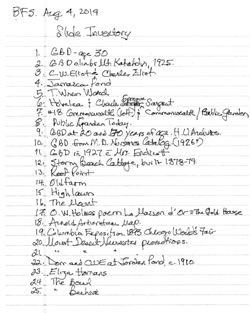 BFS. Aug. 4, 2019
Slide Inventory
1. GBD - age 30
2. GBD climbs Mt. Katahdin, 1925.
3. C. W. Eliot & Charles Eliot
4. Jamaica Pond
5. T. Wren Ward
6. Holmlea & Coach Sargent
7. #18 Commonwealth (left) & Commonwealth / Public Garden,
8. Public Garden Today.
9. GBD at 20 and 70 years of age. H.U. Archives.
10. GBD from M.D. Nurseries Catalog (1926?)
11. GBD in 1927 & Mrs. Endicott
12. Storm Beach Cottage, built 1878-79
13. Reef Point
14. Oldfarm
15. Highlawn
16. The Mount
17. O.W. Holmes poem La Maison d'Or = The Gold House
18. Arnold Arboretum Map.
19. Columbia Exposition 1893 Chicago World's Fair
20. Mount Desert Nurseries promotions.
21. " " "
22. Dorr and CWE at Jordan Pond, c. 1910
23. Eliza Homans
24. The Bowl
25. " Beehive